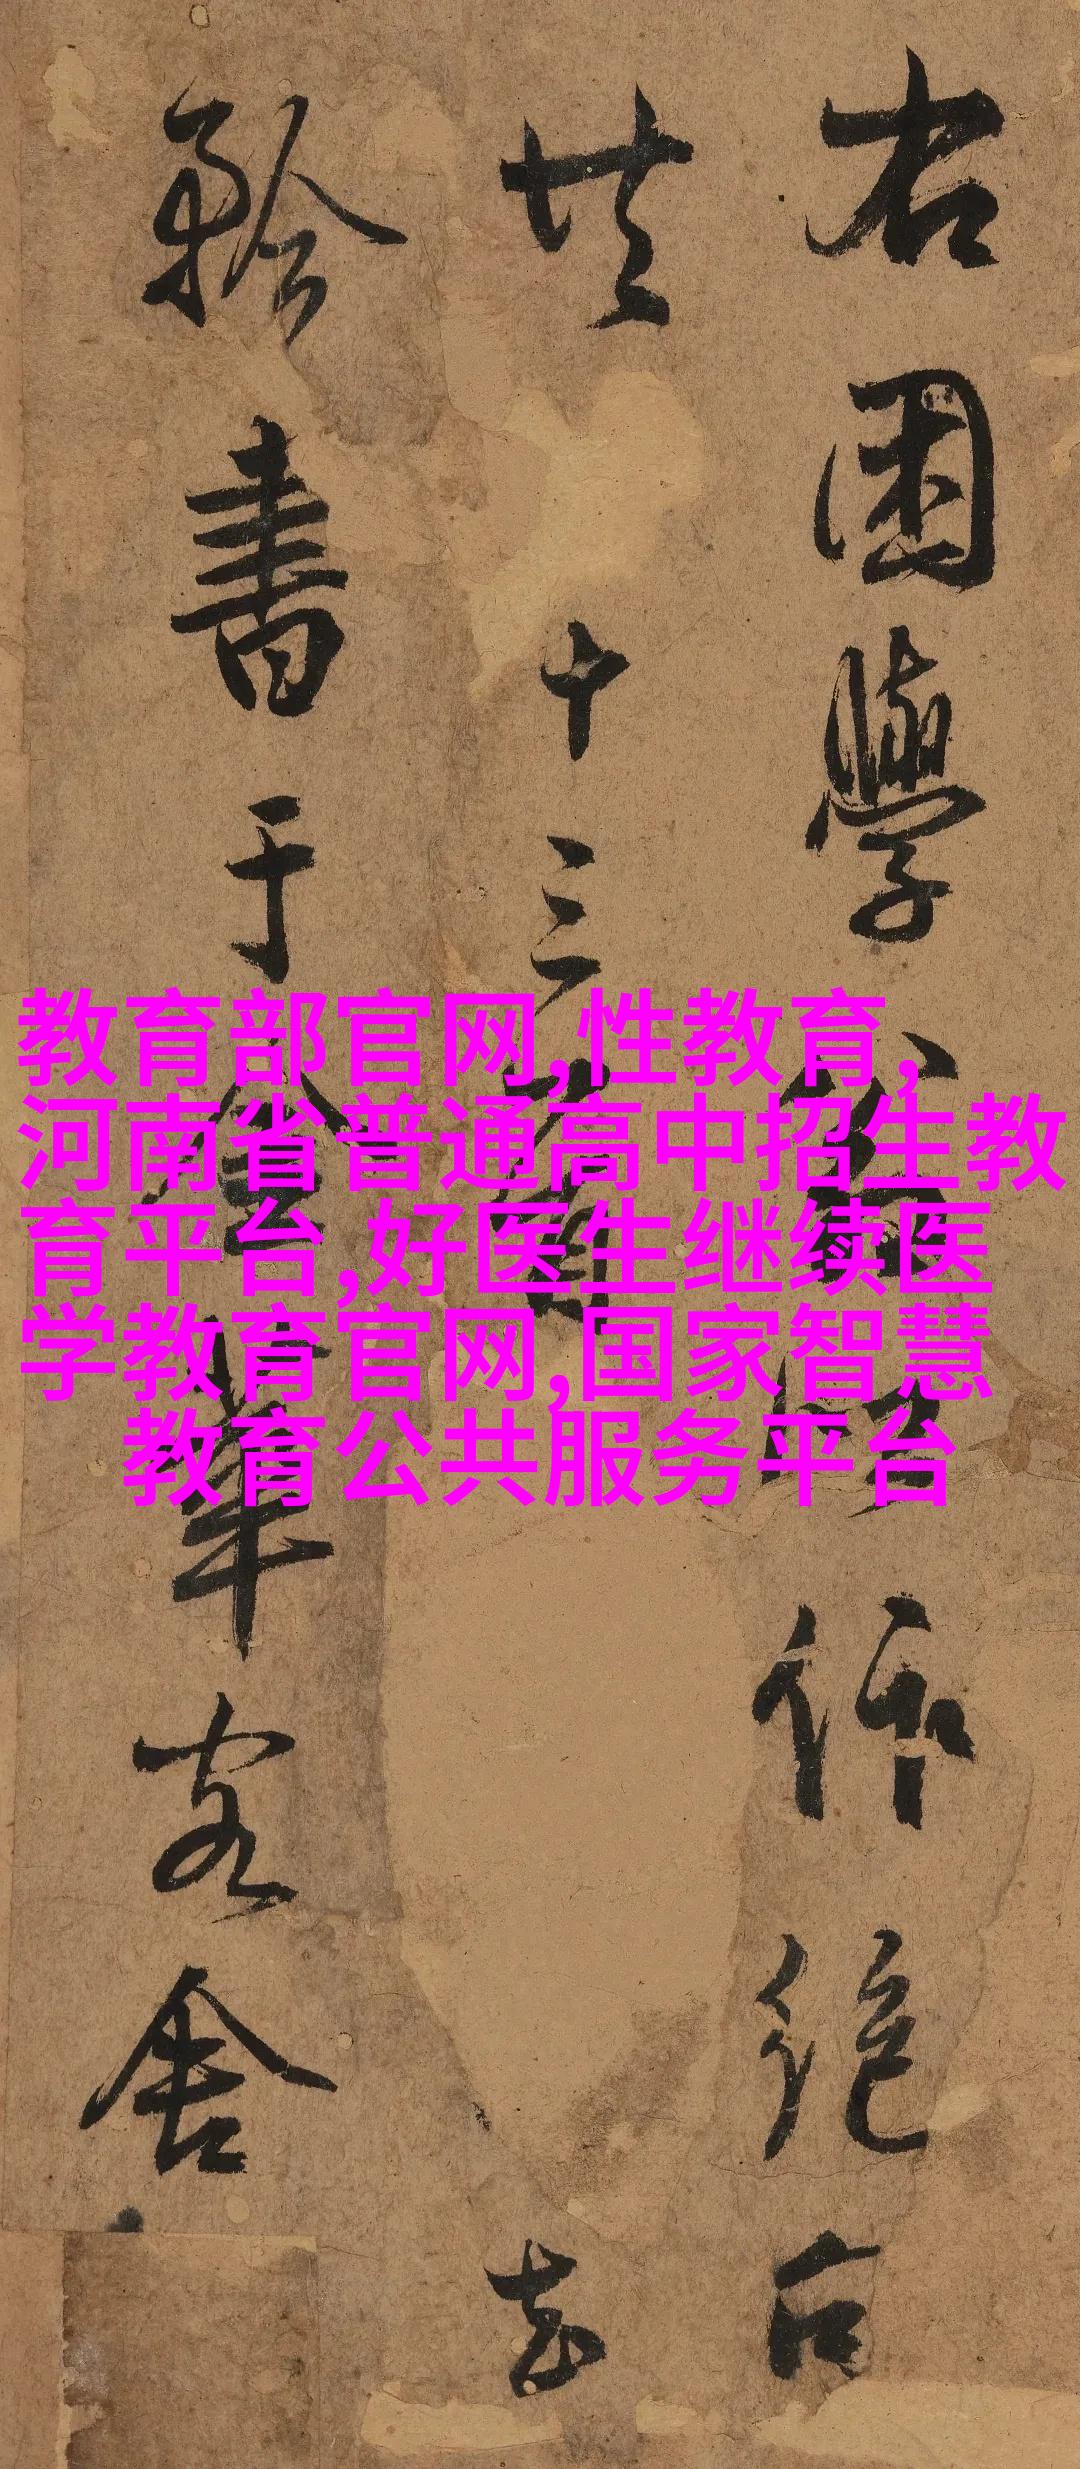 右困學作絕句
共十三首
書于金華客舍
教育部官网,性教育,
河南省普通高中招生教
育平台,好医生继续医
学教育官网,国家智慧
教育公共服务平台